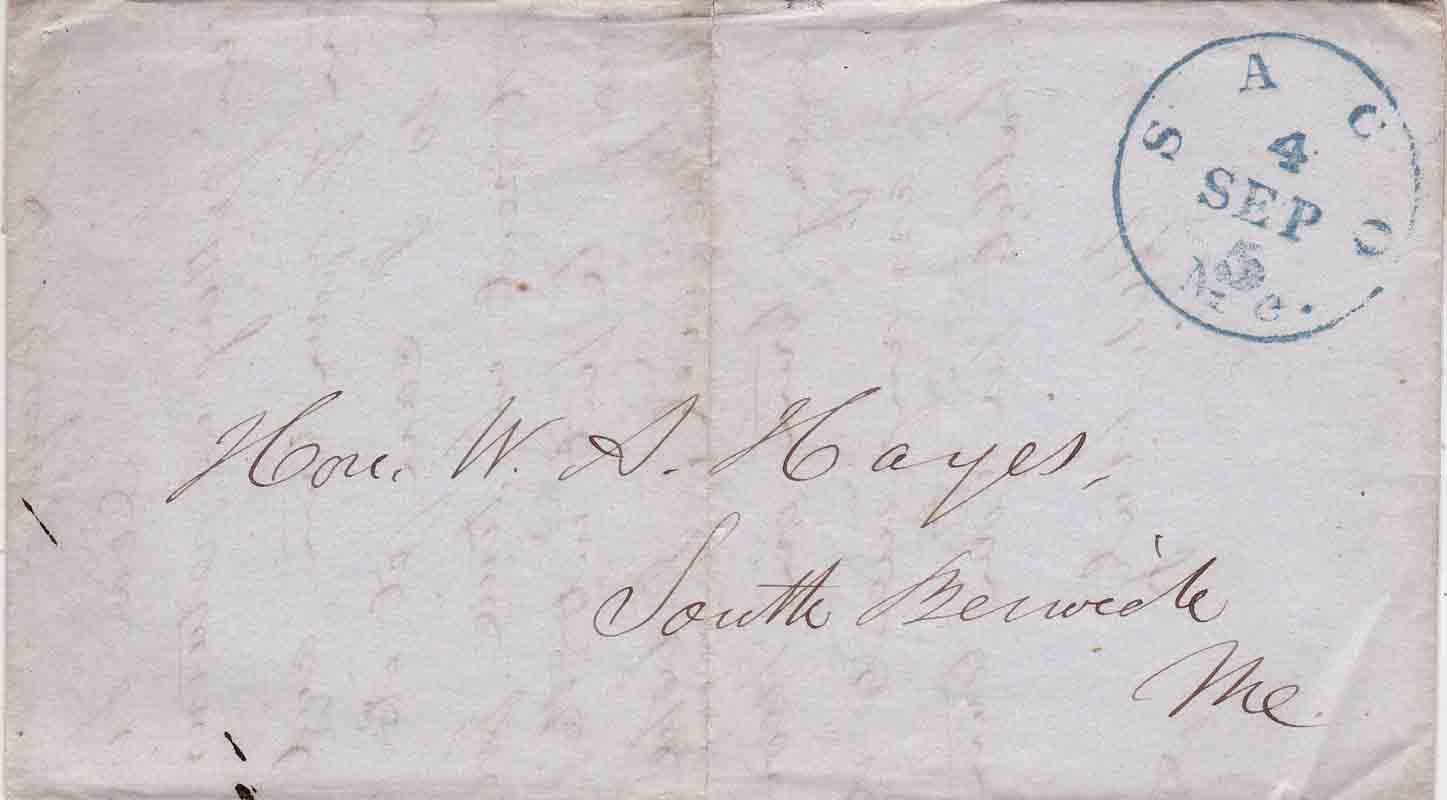 SACO
4
SEP
Me.
Hon. W. A. Hayes,
South Berwick
Me